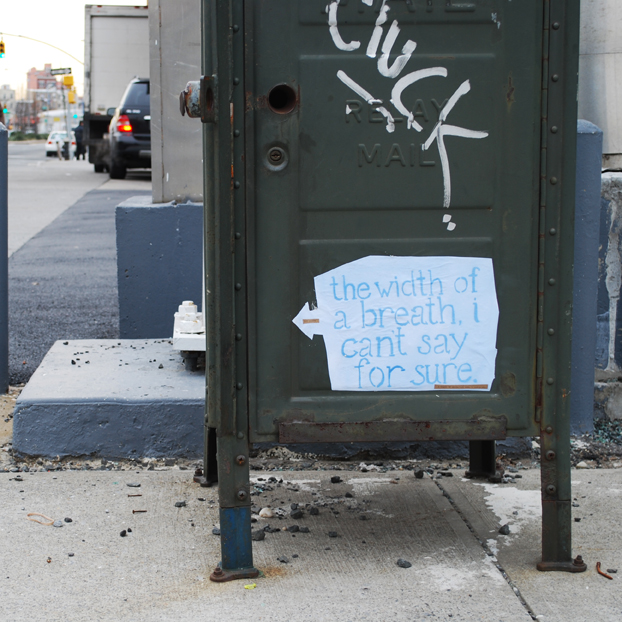 RELAY
MAIL
the width of
a breath, i
cant say
for sure.